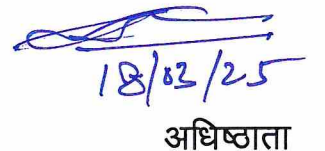 18/03/25
अधिष्ठाता